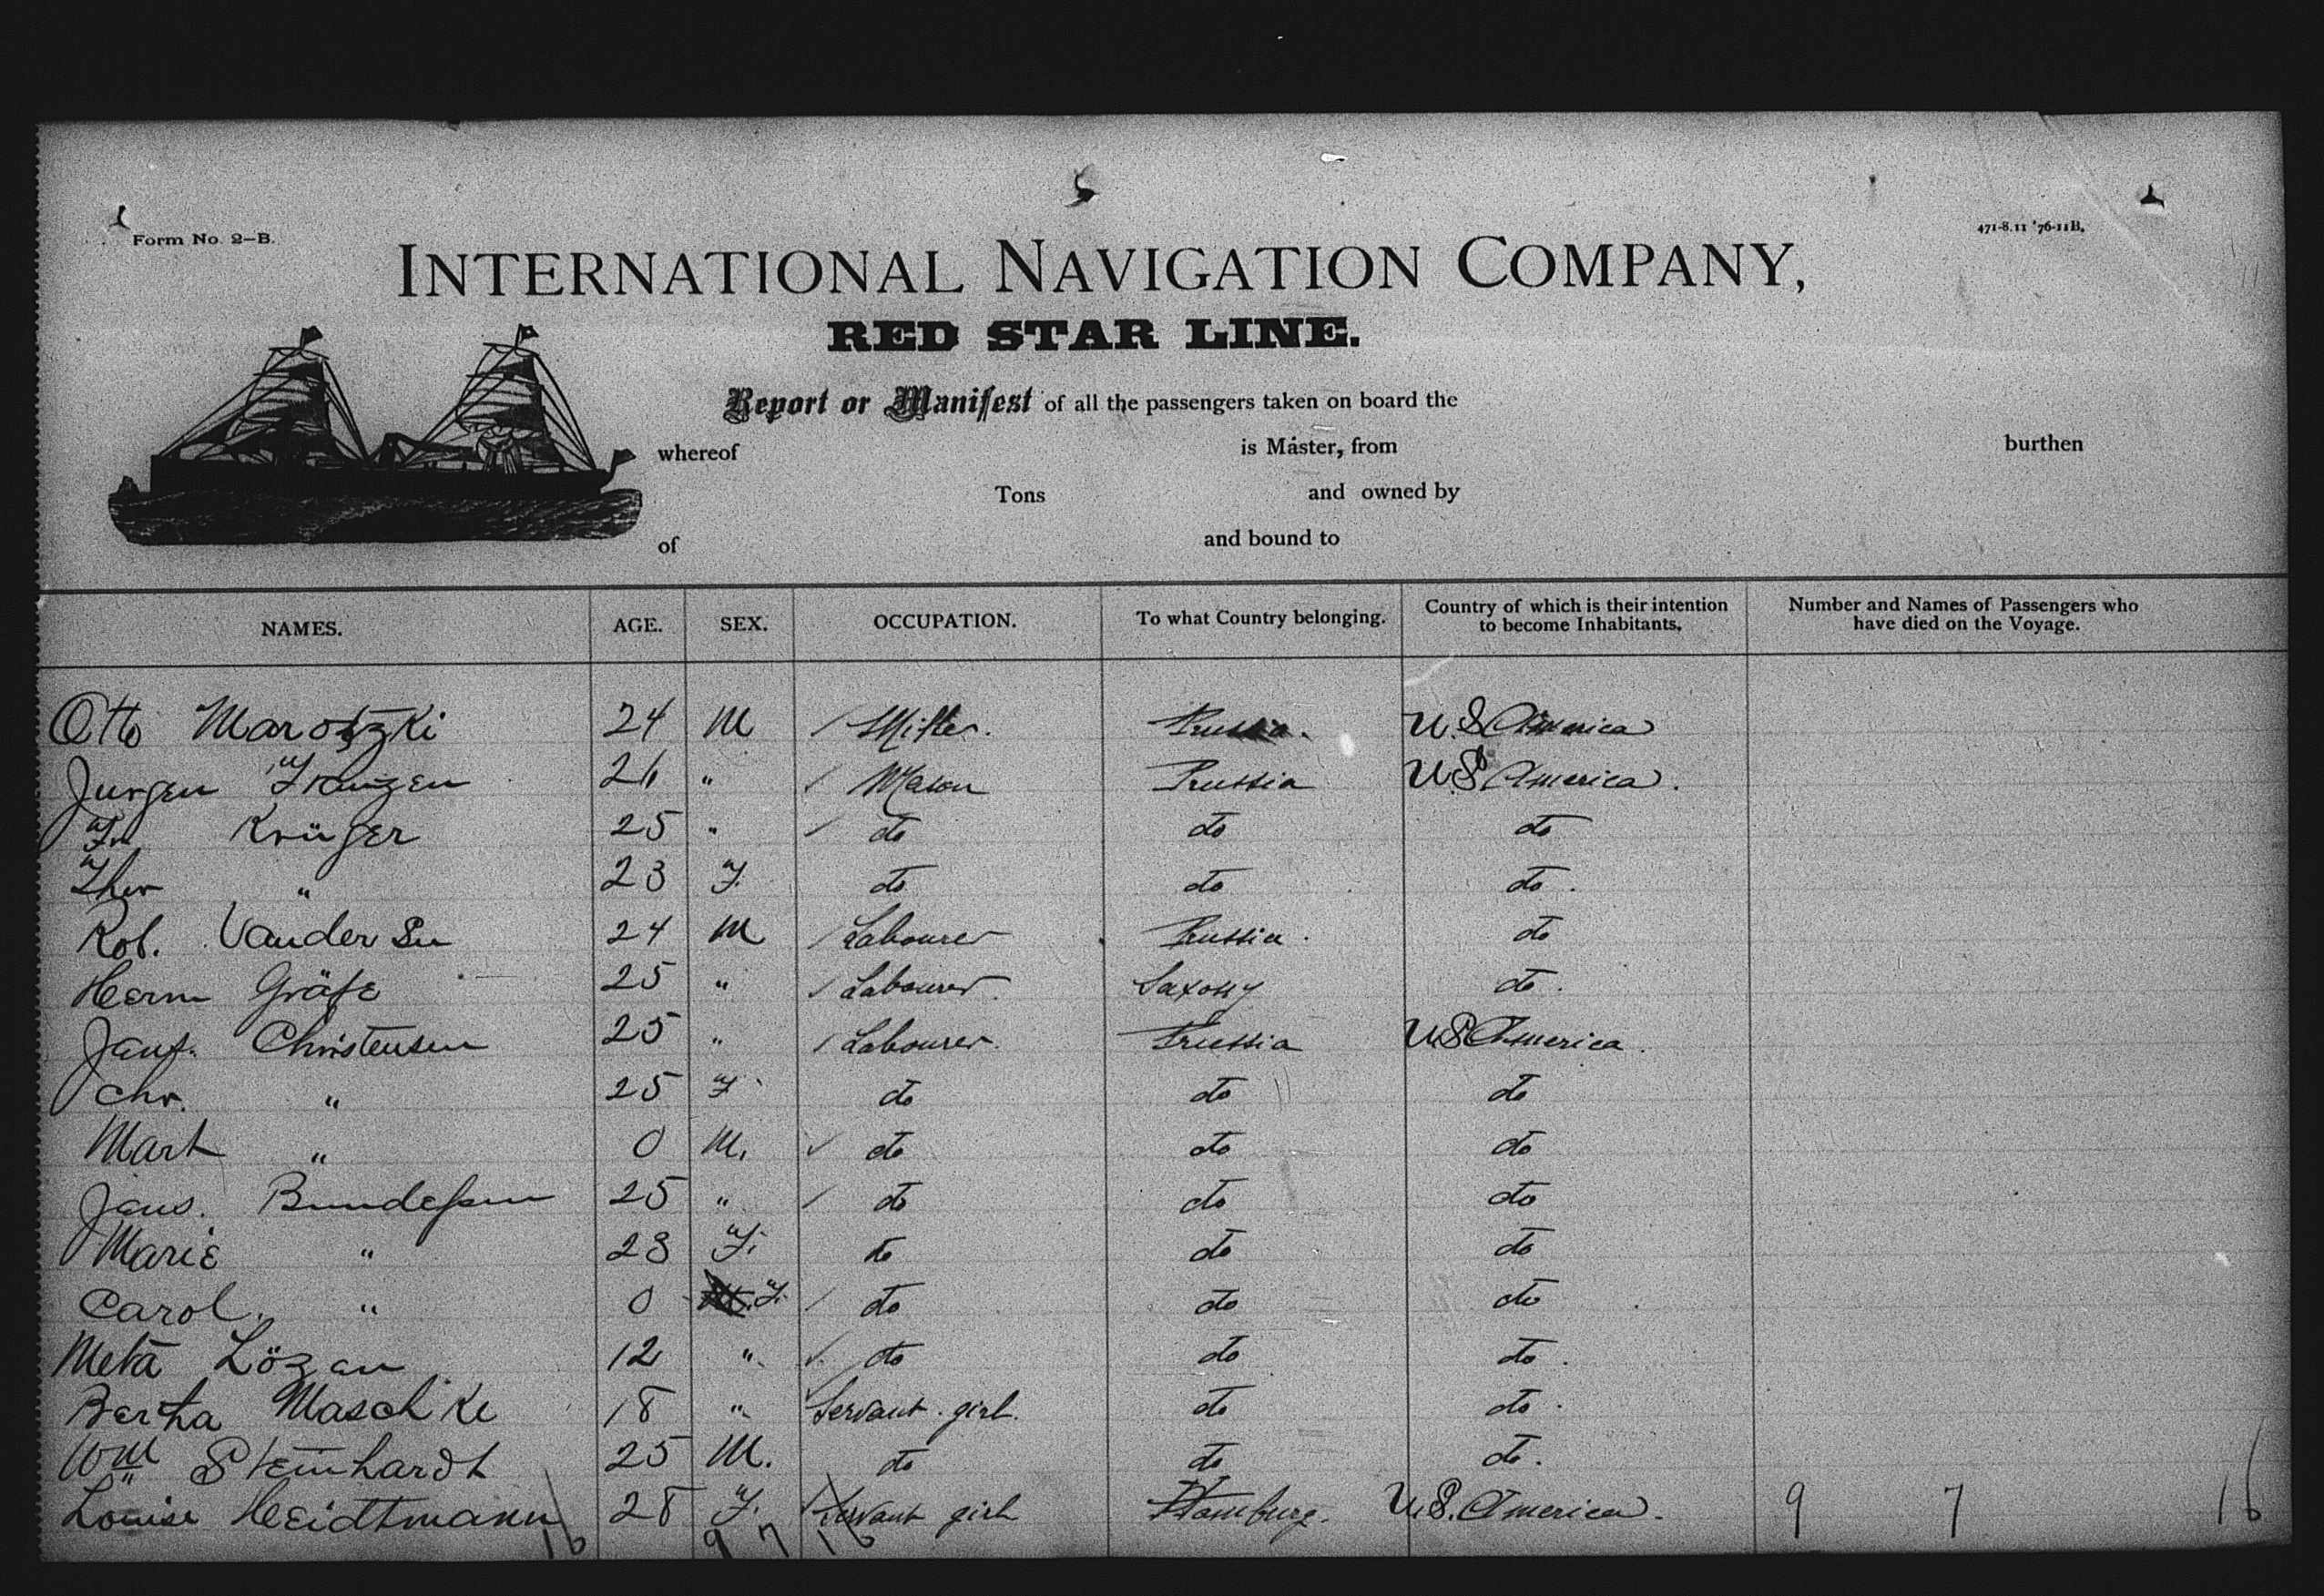 Form No. 2-B.
471-8.11 '76-11B.
INTERNATIONAL NAVIGATION COMPANY,
RED STAR LINE.
Report or Manifest of all the passengers taken on board the
whereof is Master, from burthen
Tons and owned by
of and bound to
NAMES. AGE. SEX. OCCUPATION. To what Country belonging. Country of which is their intention to become Inhabitants. Number and Names of Passengers who have died on the Voyage.
Otto Marotzki 24 M Miller. Prussia. U.S America
Jurgen 26 " Mason Prussia US America.
Fr Krüger 25 " do do do
Ther " 23 F. do do do.
Rob. Vander 24 M Labourer Prussia. do
Herm Gräfe 25 " Labourer. Saxony do.
Christensen 25 " Labourer. Prussia US America.
Chr. " 25 F do do do
Mart " 0 M. do do do
Bundeſsen 25 " do do do
Marie " 23 F. do do do
Carol. " 0 F. do do do
Meta 12 " do do do.
Bertha Maschke 18 " Servant girl. do do.
Wm Steinhardt 25 M. do do do.
Louise Heidtmann 28 F. Servant girl Hamburg. U.S. America. 9 7 16
16 9 7 16